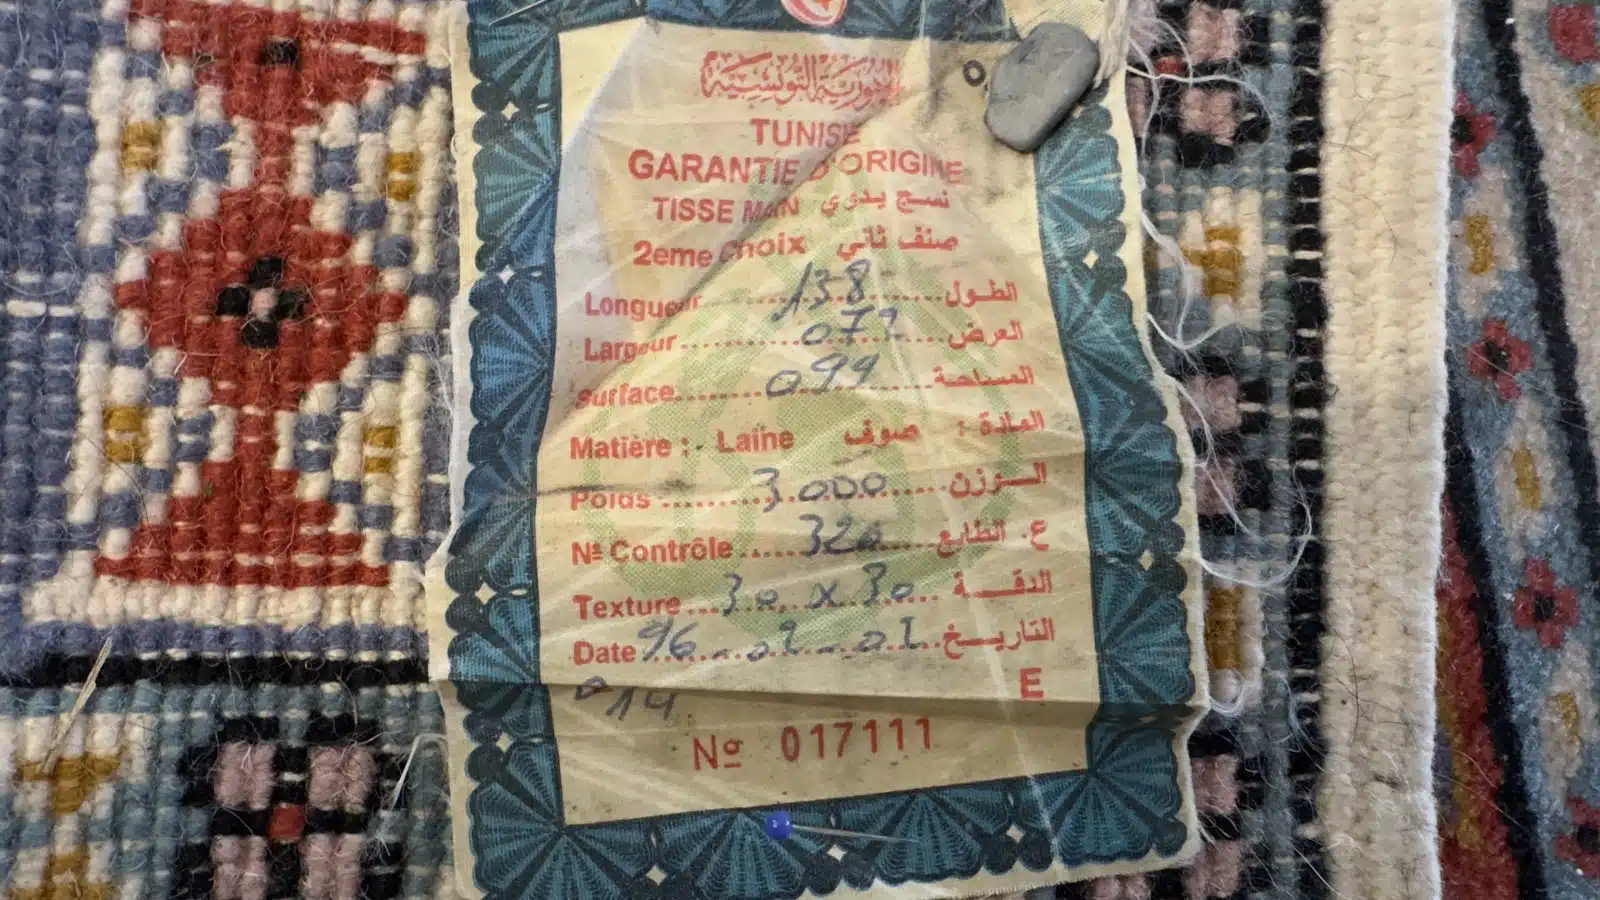 الجمهورية التونسية
TUNISIE
GARANTIE D'ORIGINE
TISSE MAIN نسج يدوي
2eme choix صنف ثاني
Longueur 138 الطول
Largeur 072 العرض
Surface 099 المساحة
Matière : Laïne صوف المادة :
Poids 3000 الوزن
Nº Contrôle 320 ع. الطابع
Texture 30 x 30 الدقة
Date 96 - 02 - 01 التاريخ
E
14
Nº 017111